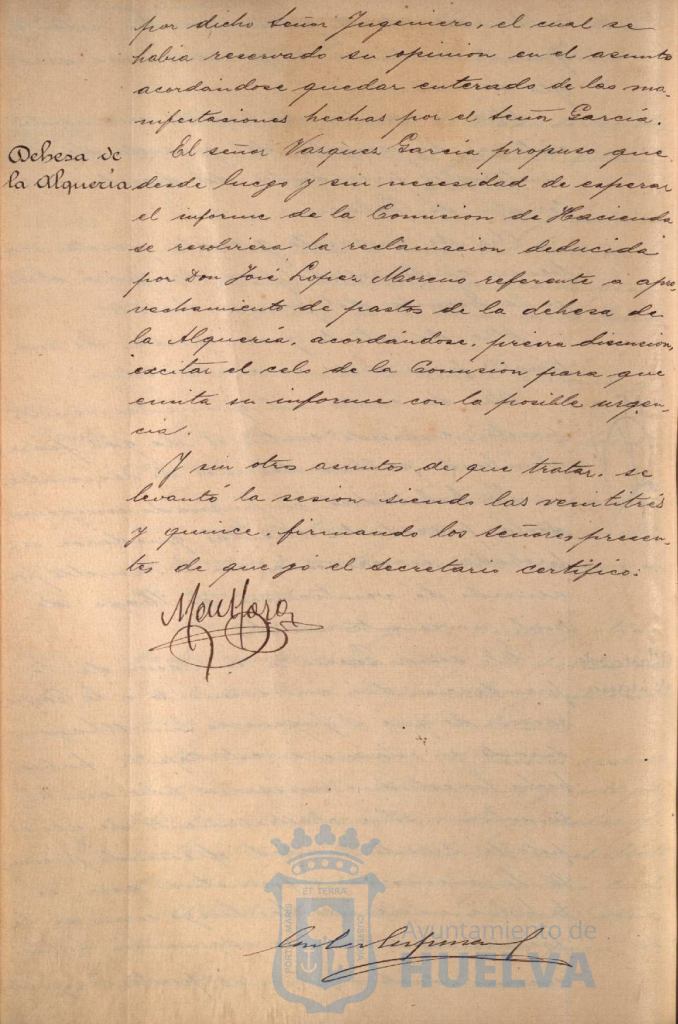 por dicho señor Ingeniero, el cual se
habia reservado su opinion en el asunto
acordándose quedar enterado de las ma-
nifestaciones hechas por el señor García.
Dehesa de
la Alquería
El señor Vazquez García propuso que
desde luego y sin necesidad de esperar
el informe de la Comision de Hacienda
se resolviera la reclamacion deducida
por Don José Lopez Moreno referente a apro-
vechamiento de pastos de la dehesa de
la Alquería, acordándose, previa discusion,
excitar el celo de la Comision para que
emita su informe con la posible urgen-
cia.
Y sin otros asuntos de que tratar, se
levantó la sesion siendo las veintitrés
y quince, firmando los señores presen-
tes de que yo el secretario certifico:
ET TERRA
PORTUS MARIS
CUSTODIA
Ayuntamiento de
HUELVA